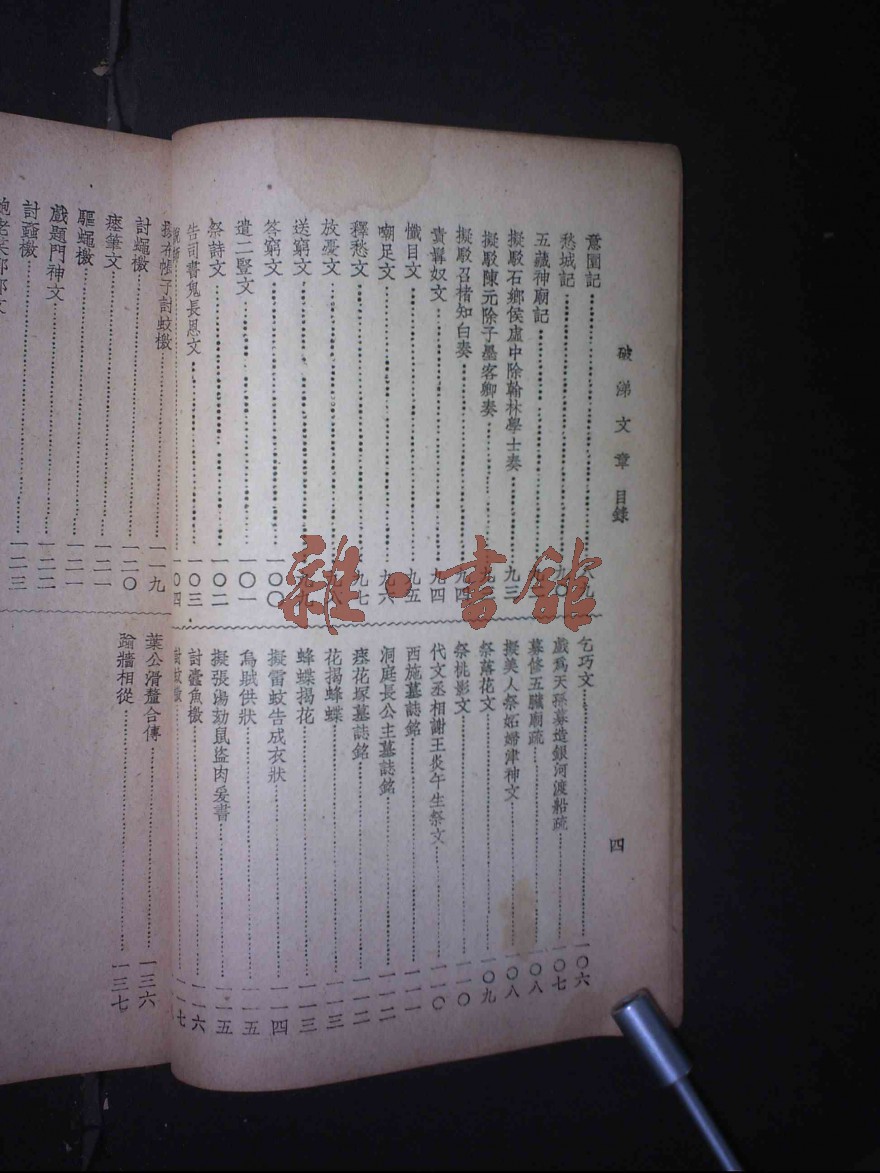 破涕文章 目錄
四
意園記 八九
愁城記 九〇
五藏神廟記
擬駁石鄉侯虛中除翰林學士奏 九三
擬駁陳元除子墨客卿奏
擬駁召楮知白奏 九四
責髯奴文 九四
懺目文 九五
嘲足文 九六
釋愁文 九七
放憂文 九八
送窮文 九九
答窮文 一〇〇
遣二豎文 一〇一
祭詩文 一〇二
告司書鬼長恩文 一〇三
一〇四
乞巧文 一〇六
戲爲天孫募造銀河渡船疏 一〇七
募修五臟廟疏 一〇八
擬美人祭妬婦津神文 一〇八
祭落花文 一〇九
祭桃影文 一一〇
代文丞相謝王炎午生祭文 一一〇
西施墓誌銘 一一一
洞庭長公主墓誌銘 一一二
瘞花塚墓誌銘 一一二
花揭蜂蝶 一一三
蜂蝶揭花 一一三
擬雷蚊告成衣狀 一一四
烏賊供狀 一一五
擬張湯劾鼠盜肉爰書 一一五
討蠹魚檄 一一六
討蚊檄 一一七
帳子討蚊檄 一一九
討蠅檄 一二〇
瘞筆文 一二一
驅蠅檄 一二一
戲題門神文 一二二
討蝨檄 一二三
葉公滑釐合傳 一三六
踰牆相從 一三七
雜·書館